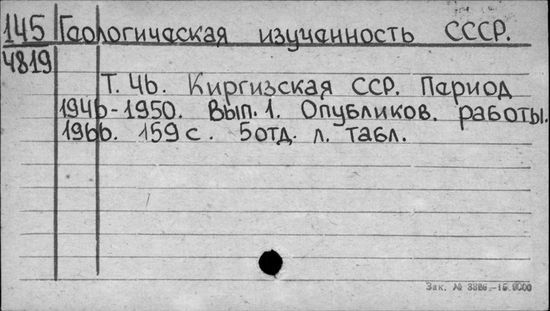 145 Геологическая изученность СССР.
4819
Т. 46. Киргизская ССР. Период
1946-1950. Вып. 1. Опубликов. работы.
1966. 159 с. 5 отд. л. табл.